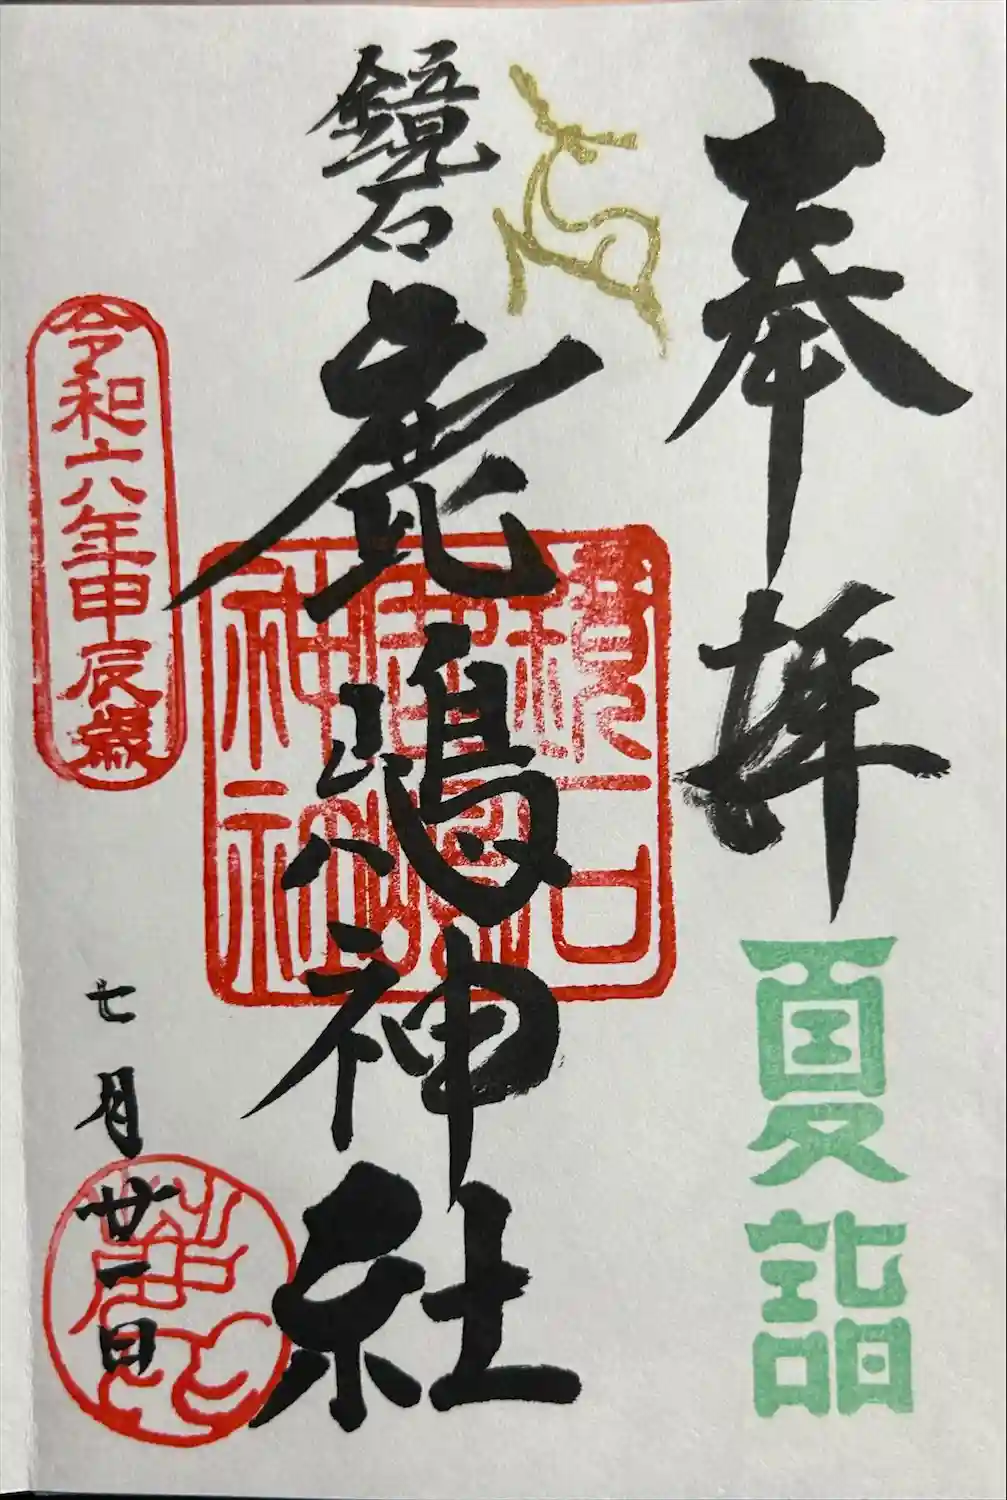 奉拝
夏詣
鏡石
鹿嶋神社
鏡石
鹿嶋
神社
令和六年甲辰歳
七月廿一日